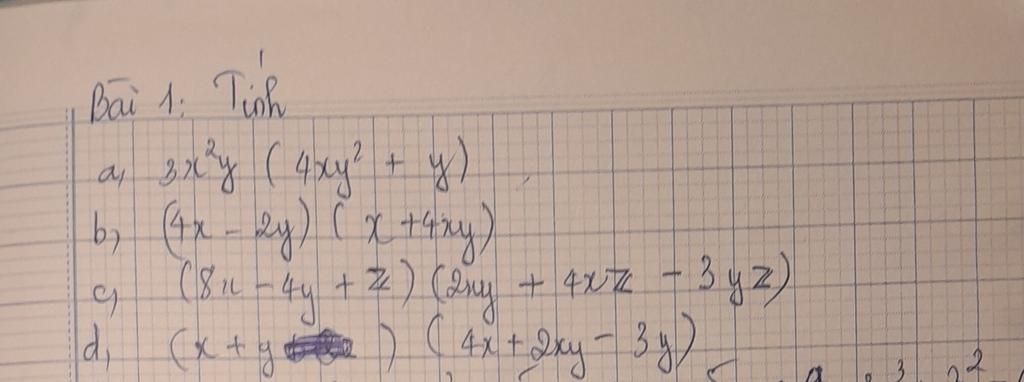 Bài 1: Tính
a, 3x²y ( 4xy² + y)
b, (4x - 2y) ( x + 4xy)
c, (8x - 4y + z) (2xy + 4xz - 3yz)
d, (x + y ) ( 4x + 2xy - 3y)